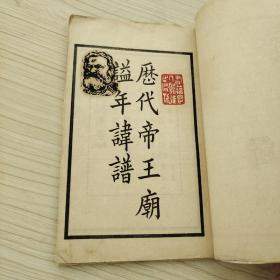 歷代帝王廟
謚年諱譜